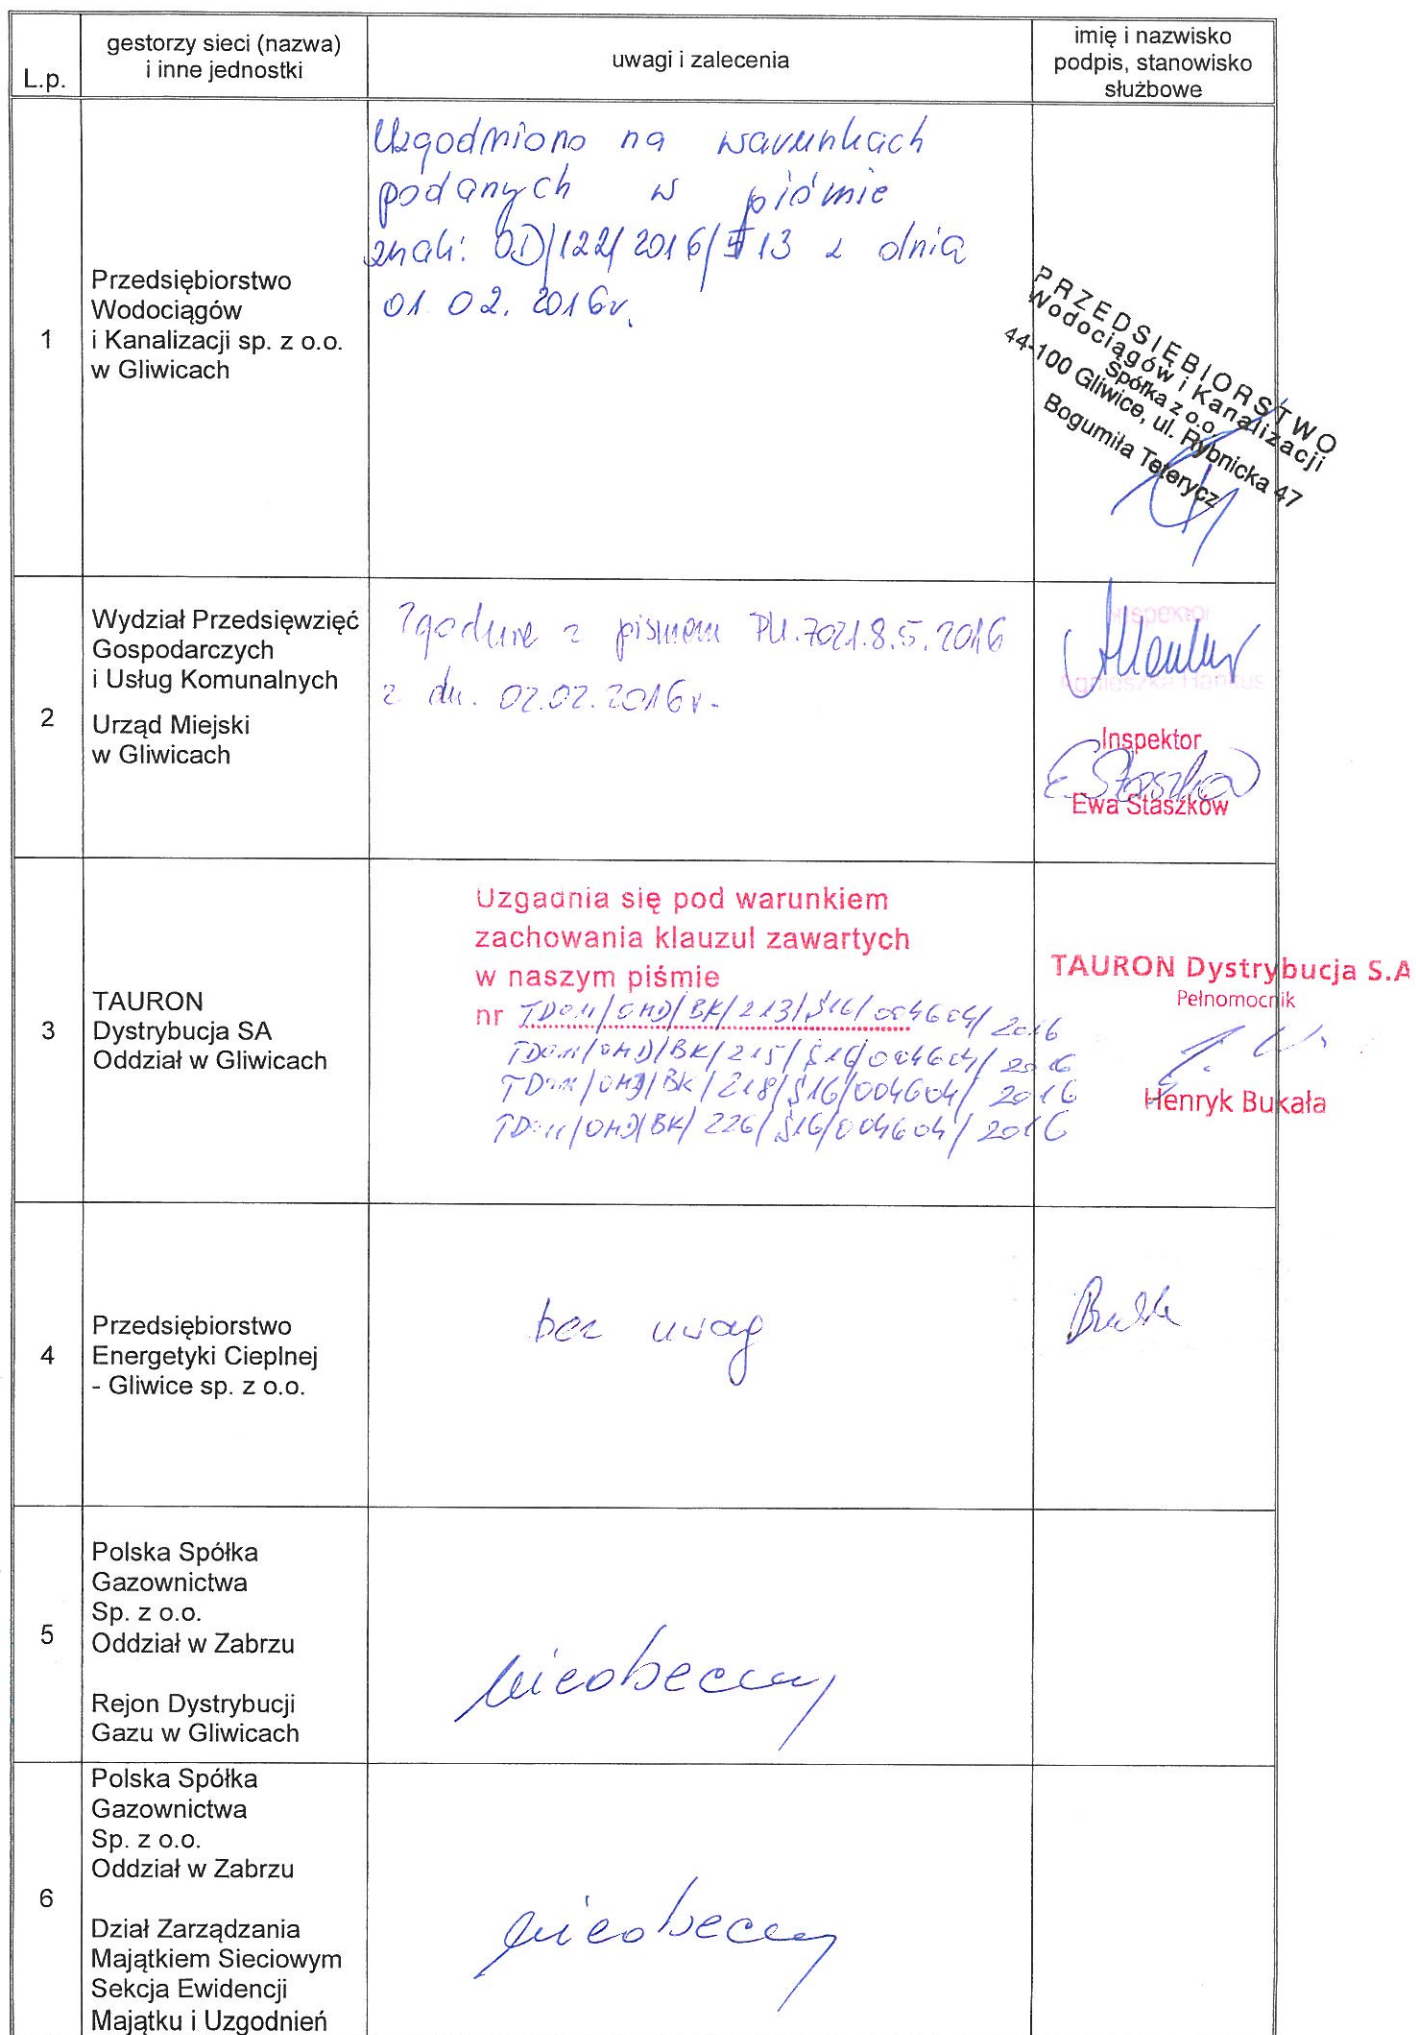 L.p.
gestorzy sieci (nazwa)
i inne jednostki
uwagi i zalecenia
imię i nazwisko
podpis, stanowisko
służbowe
1
Przedsiębiorstwo
Wodociągów
i Kanalizacji sp. z o.o.
w Gliwicach
Uzgodniono na warunkach
podanych w piśmie
znak: OD/122/2016/ 13 z dnia
01.02.2016r.
PRZEDSIĘBIORSTWO
Wodociągów i Kanalizacji
Spółka z o.o.
44-100 Gliwice, ul. Rybnicka 47
Bogumiła Teterycz
2
Wydział Przedsięwzięć
Gospodarczych
i Usług Komunalnych
Urząd Miejski
w Gliwicach
Zgodnie z pismem PU.7021.8.5.2016
z dn. 02.02.2016r.
Inspektor
Agnieszka
Inspektor
E. Staszków
Ewa Staszków
3
TAURON
Dystrybucja SA
Oddział w Gliwicach
Uzgadnia się pod warunkiem
zachowania klauzul zawartych
w naszym piśmie
nr TD011/OMD/BK/213/S16/004604/2016
TD011/OMD/BK/215/S16/004604/2016
TD011/OMD/BK/218/S16/004604/2016
TD011/OMD/BK/226/S16/004604/2016
TAURON Dystrybucja S.A
Pełnomocnik
Henryk Bukała
4
Przedsiębiorstwo
Energetyki Cieplnej
- Gliwice sp. z o.o.
bez uwag
5
Polska Spółka
Gazownictwa
Sp. z o.o.
Oddział w Zabrzu
Rejon Dystrybucji
Gazu w Gliwicach
nieobecny
6
Polska Spółka
Gazownictwa
Sp. z o.o.
Oddział w Zabrzu
Dział Zarządzania
Majątkiem Sieciowym
Sekcja Ewidencji
Majątku i Uzgodnień
nieobecny